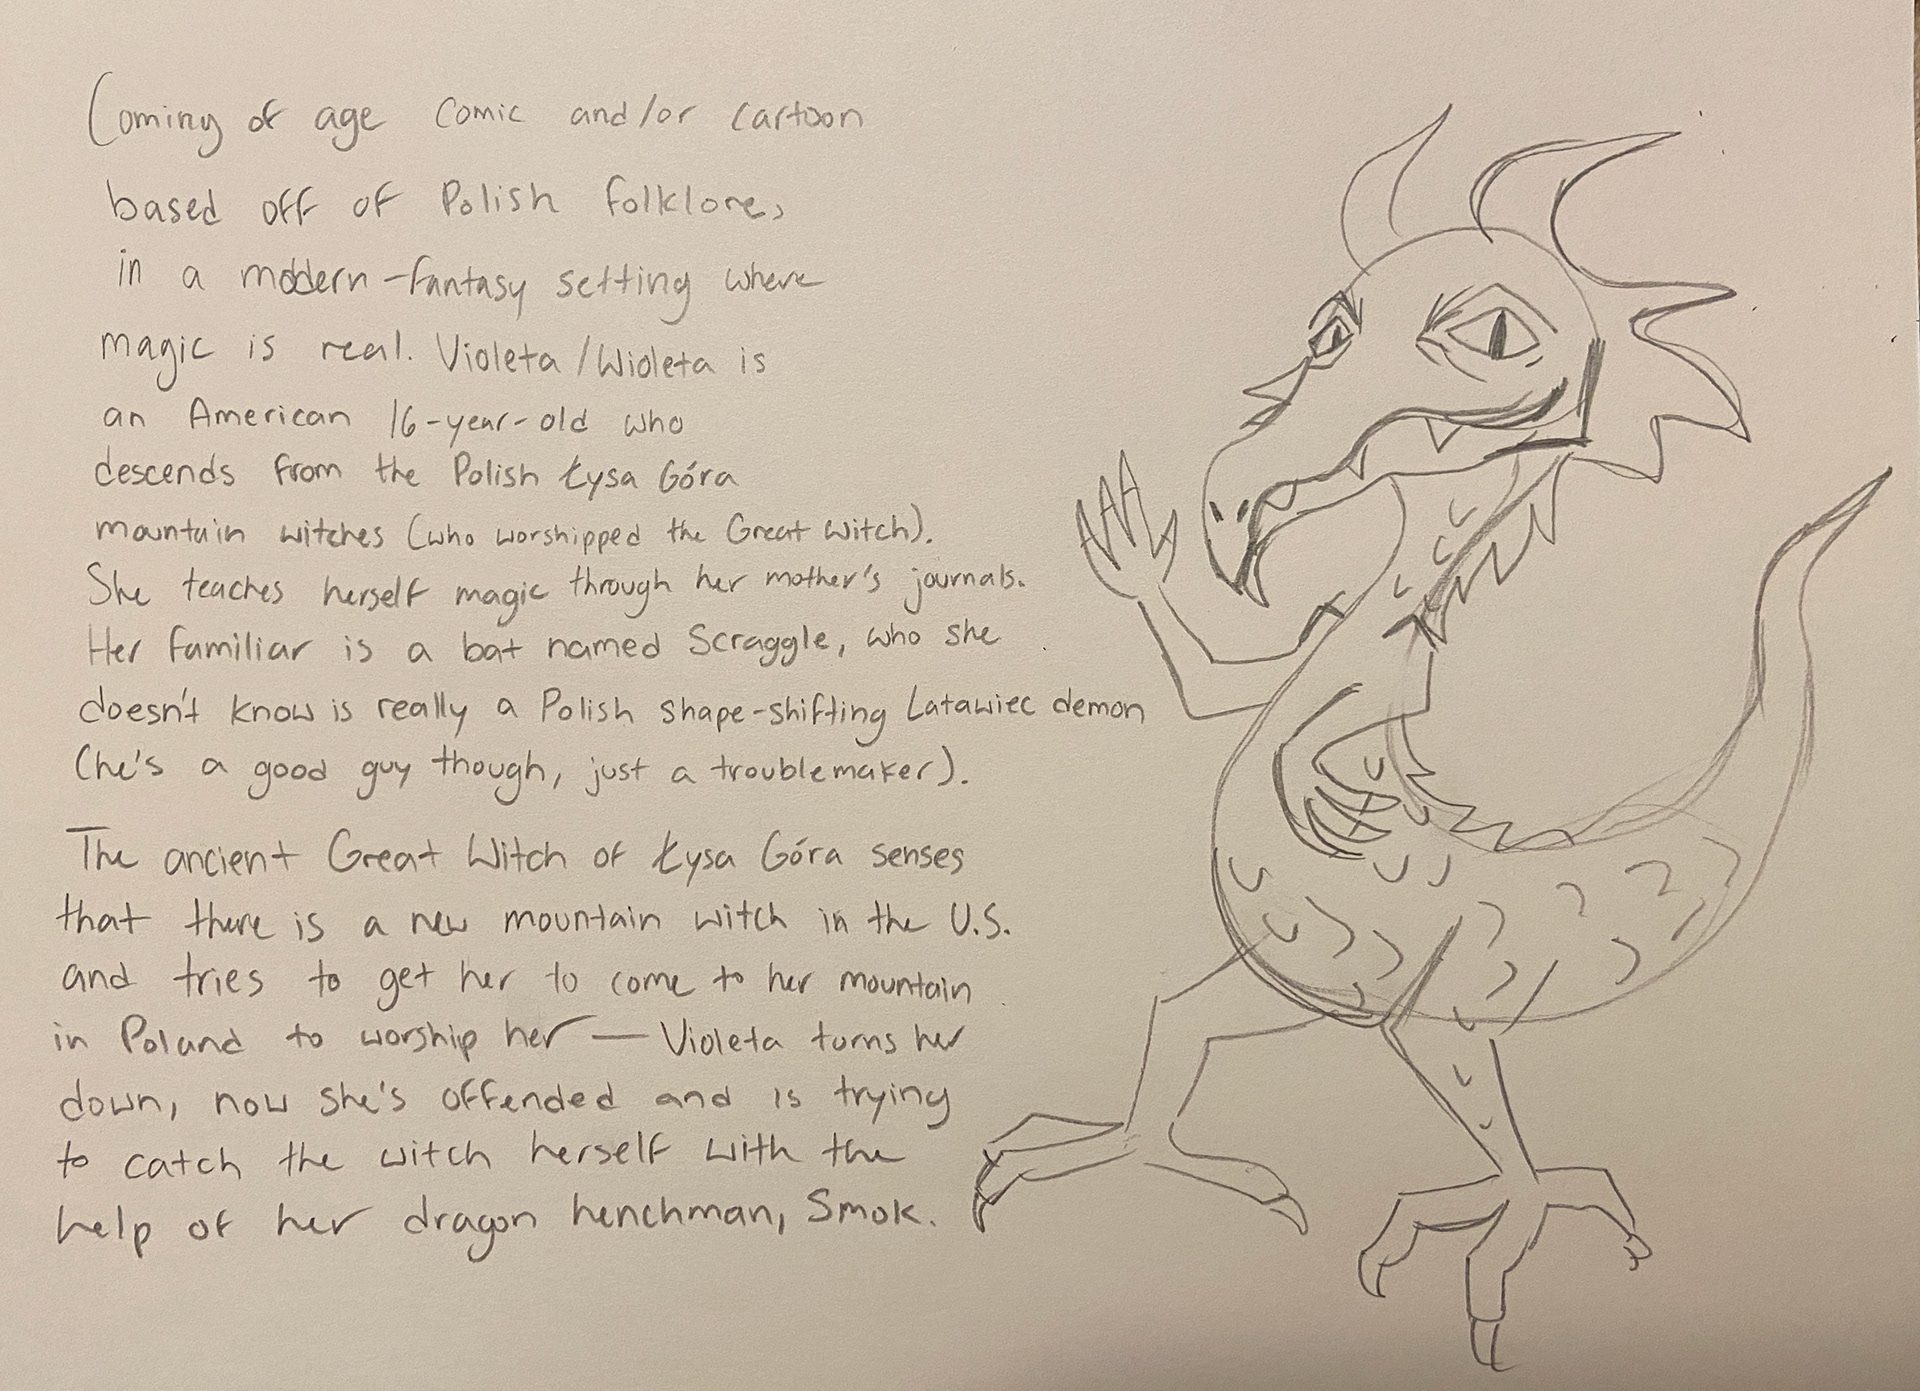 Coming of age comic and/or cartoon
based off of Polish folklore,
in a modern-fantasy setting where
magic is real. Violeta/Wioleta is
an American 16-year-old who
descends from the Polish Łysa Góra
mountain witches (who worshipped the Great Witch).
She teaches herself magic through her mother's journals.
Her familiar is a bat named Scraggle, who she
doesn't know is really a Polish shape-shifting Latawiec demon
(he's a good guy though, just a troublemaker).
The ancient Great Witch of Łysa Góra senses
that there is a new mountain witch in the U.S.
and tries to get her to come to her mountain
in Poland to worship her — Violeta turns her
down, now she's offended and is trying
to catch the witch herself with the
help of her dragon henchman, Smok.